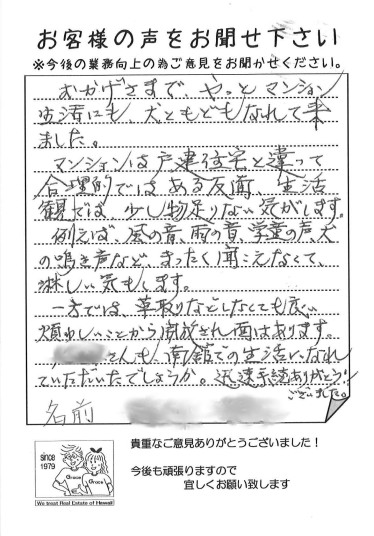 お客様の声をお聞せ下さい
※今後の業務向上の為ご意見をお聞かせください。
おかげさまで、やっとマンション
生活にも、犬ともどもなれて来
ました。
マンションは戸建住宅と違って
合理的ではある反面、生活
観では、少し物足りない気がします。
例えば、風の音、雨の音、学童の声、犬
の鳴き声など、まったく聞こえなくて、
淋しい気もします。
一方では、草取りなどしなくても良い
煩わしいことから開放され面はあります。
さんも、函館での生活になれ
ていただいたでしょうか。迅速手続ありがとう
ございました。
名前
since
1979
Grace
Grace
We treat Real Estate of Hawaii
貴重なご意見ありがとうございました！
今後も頑張りますので
宜しくお願い致します